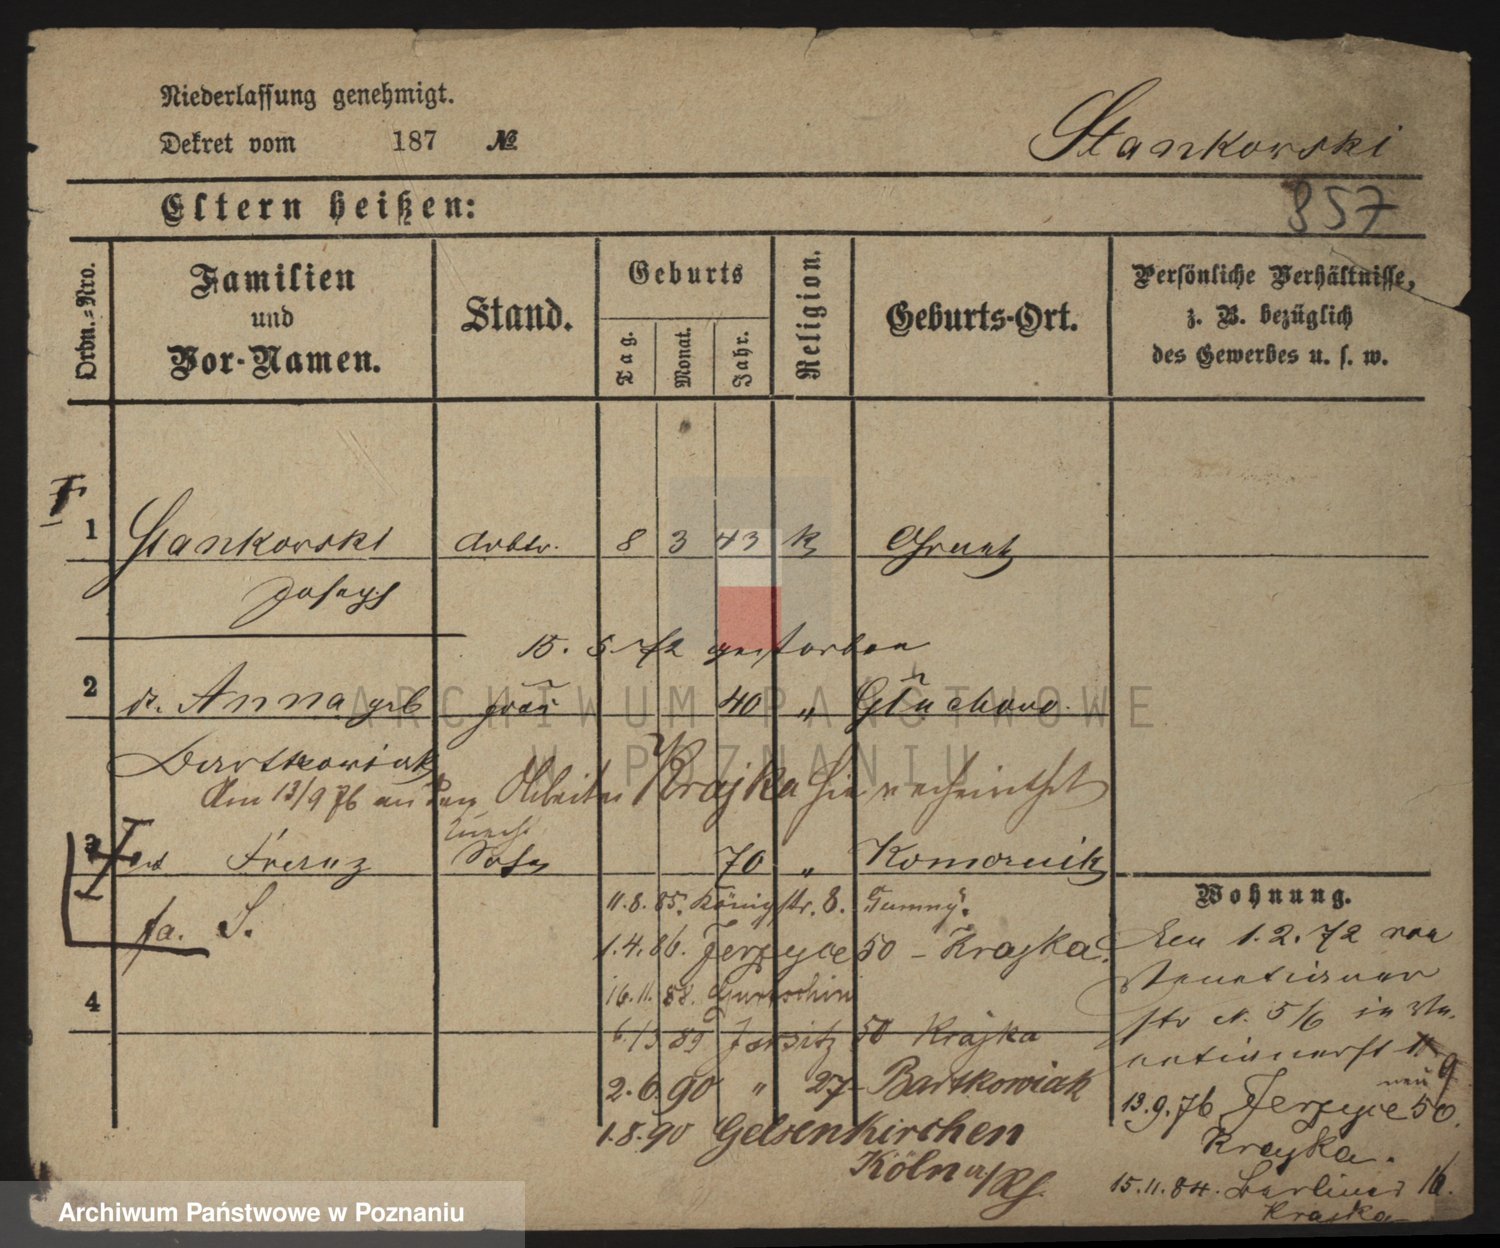 Niederlassung genehmigt.
Dekret vom 187 №
Stankowski
857
Eltern heißen:
Ordn.-Nro.
Familien und Vor-Namen.
Stand.
Geburts
Tag.
Monat.
Jahr.
Religion.
Geburts-Ort.
Persönliche Verhältnisse,
z. B. bezüglich
des Gewerbes u. s. w.
1 Stankowski Arbtr. 8 3 43 k
Joseph
15. 5. 72 gestorben
2 Anna geb Frau 40 " Głuchowo.
Bartkowiak
Am 13/9 76 an den Arbeiter Krajka hier verheirathet
3 Franz Sohn 70 " Komornik
fa. S.
4
11.8.85. Königstr. 8.
1.4.86. Jerzyce 50 - Krajka.
16.11.88. Gurtschin
6/3 89 Jersitz 50 Krajka
2.6.90 " 27 Bartkowiak
1.8.90 Gelsenkirchen
Köln a/Rh.
Wohnung.
Den 1.2.72 von
Venetianer
str N. 5/6 in Ve-
netianerst
neu 9
13.9.76 Jerzyce 50.
Krajka.
15.11.84. Berliner 16.
Krajka
ARCHIWUM PAŃSTWOWE
W POZNANIU
Archiwum Państwowe w Poznaniu